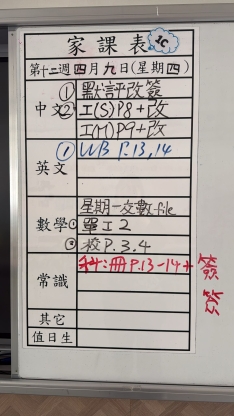 家課表 1C
第十二週四月九日(星期四)
中文
① 默評改簽
② 工(S)P8+改
工(M)P9+改
英文
① WB P.13,14
數學
星期一交數file
① 單工2
② 校P.3.4
常識
科:冊P.13-14+
其它
值日生